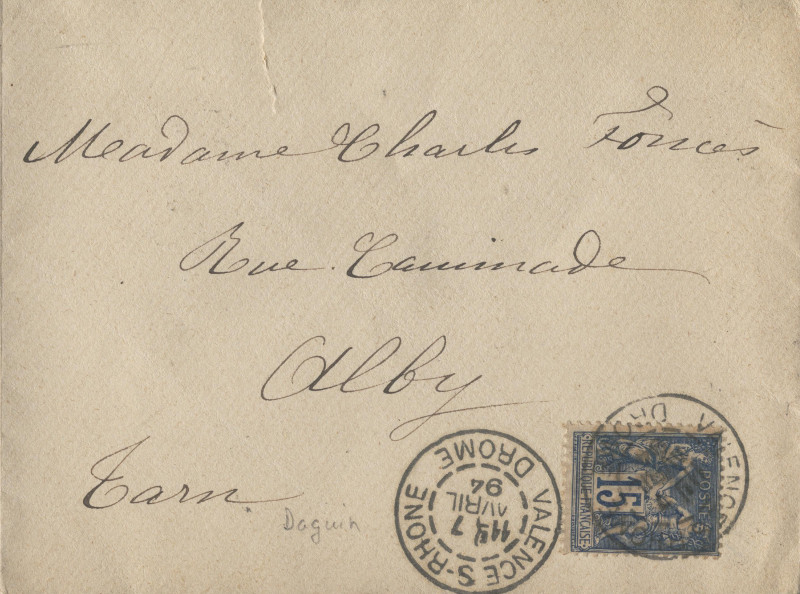 Madame Charles Foncès
Rue Caminade
Alby
Tarn
Daguin
VALENCE S-RHONE
7
AVRIL
94
DROME
VALENCE
DROME
POSTES
15
REPUBLIQUE FRANÇAISE